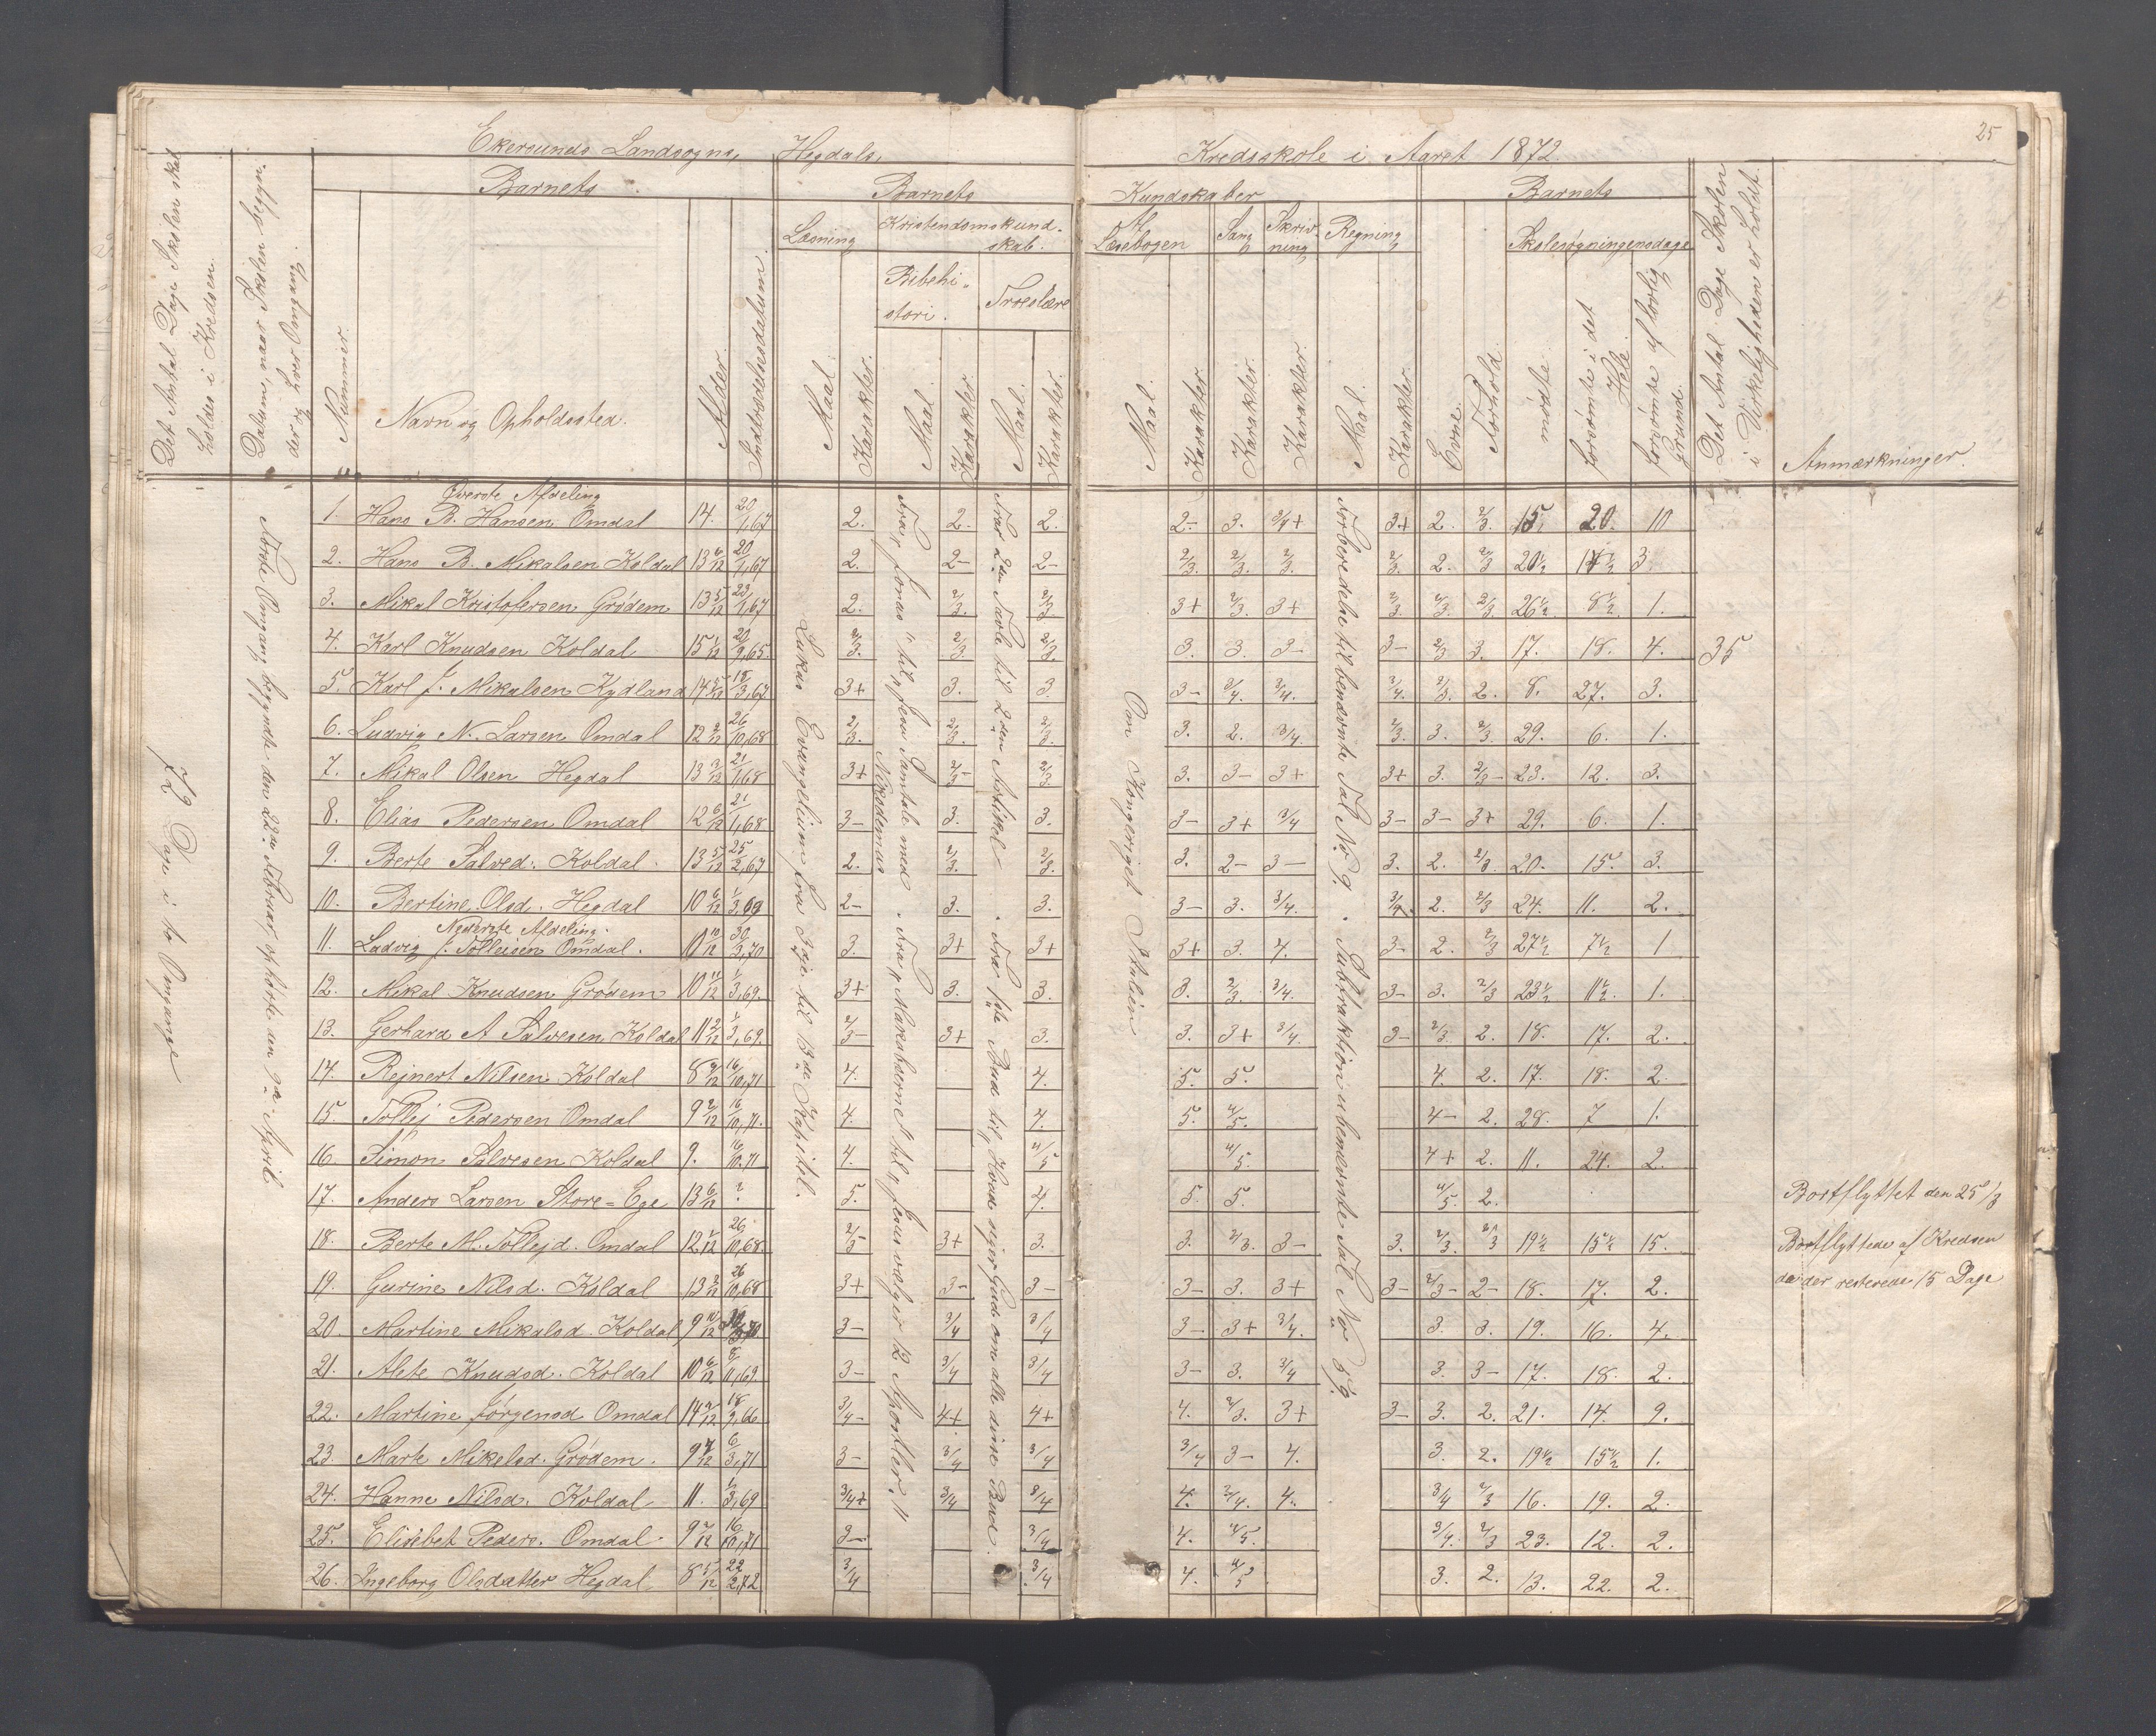 25
Ekersunds Landsogns, Hegdals, Kredsskole i Aaret 1872.
Det Antal Dage Skolen skal holdes i Kredsen.
Datum, naar Skolen begyn-
der og hver Omgang.
Barnets
Nummer.
Navn og Opholdssted.
Alder.
Indtrædelsesdatum.
Barnets Kundskaber
Læsning
Maal.
Karakter.
Kristendomskund-
skab.
Bibelhi-
stori.
Maal.
Karakter.
Troeslære
Maal.
Karakter.
Af
Læsebogen
Maal.
Karakter.
Sang
Karakter.
Skriv
ning
Karakter.
Regning
Maal.
Karakter.
Barnets
Evne.
Forhold.
Skolesøgningensdage
mødte.
forsømte i det
Hele.
forsømte af lovlig
Grund.
Det Antal Dage Skolen
i Virkeligheden er holdt.
Anmærkninger.
72 Dage i to Omgange
Første Omgang begyndte den 22de Februar, ophørte den 9de April.
Lukas Evangelium fra Isje til 13de Kapitel.
Fra „Jonas" til „Jesu Samtale med
Nikodemus
Fra 2den Tavle til 2den Artikel
Om Kongeriget Italien
Forberedelse til benævnte Tal No 9. Subtraktion ubenævnte Tal No 59.
Øverste Afdeling
1. Hans B. Hansen Omdal 14. 20/1,67 2. 2- 2. 2- 3. 3/4+ 3+ 2. 2/3. 15. 20. 10
2. Hans B. Mikalsen Koldal 13 6/12 20/1,67 2. 2- 2- 2/3. 2/3. 2/3. 2/3. 2. 2/3 20½ 14½ 3.
3. Mikal Kristofersen Grødem 13 5/12 23/1,67 2. 2/3. 2/3 3+ 2/3. 3+ 2/3. 2/3. 2/3. 26½ 8½ 1.
4. Karl Knudsen Koldal 15 1/12 20/9,65. 2/3. 2/3. 2/3. 3. 3. 3- 3- 2/3 3. 17. 18. 4. 35
5. Karl J. Mikalsen Kydland 14 5/12 18/3,67 3+ 3. 3. 3- 3/4. 3/4. 3/4. 2/3. 2. 8. 27. 3.
6. Ludvig N. Larsen Omdal 12 2/12 26/10,68 2/3. 2/3. 2/3. 3. 2. 3/4. 2/3. 3. 2/3. 29. 6. 1.
7. Mikal Olsen Hegdal 13 3/12 21/1,68 3+ 2/3- 2/3. 3. 3- 3+ 3+ 3. 2/3- 23. 12. 3.
8. Elias Pedersen Omdal 12 6/12 21/1,68 3- 3. 3. 3- 3+ 3/4 3- 3- 3+ 29. 6. 1.
9. Berte Salved. Koldal. 13 5/12 25/2,67 2. 2/3. 2/3. 3. 2- 3- 3. 2. 2/3. 20. 15. 3.
10. Bertine Olsd. Hegdal 10 6/12 1/3,69 2- 3. 3. 3- 3. 3/4. 3/4. 2. 2/3 24. 11. 2.
Nederste Afdeling.
11. Ludvig J. Tolleisen Omdal. 10 10/12 30/3,70 3. 3+ 3+ 3+ 3. 4. 3- 2. 2/3 27½ 7½ 1
12. Mikal Knudsen Grødem 10 11/12 1/3,69. 3+ 3. 3. 3. 2/3. 3/4. 3- 3. 2/3 23½ 11½. 1.
13. Gerhard A Salvesen Koldal 11 2/12 1/3,69. 2/3- 3+ 3. 3. 3+ 3/4. 3- 2/3. 2. 18. 17. 2.
14. Rejnert Nilsen Koldal 8 9/12 16/10,71 4. 4. 5. 5. 4. 2. 17. 18. 2.
15. Tollej Pedersen Omdal 9 2/12 16/10,71. 4. 4. 5. 4/5. 4- 2. 28. 7 1.
16. Simon Salvesen Koldal 9. 16/10.71 4. 4/5 4/5. 4+ 2. 11. 24. 2.
17. Anders Larsen Store=Ege 13 6/12 ? 5. 4. 5. 5. 4/5. 2. Bortflyttet den 25/3
18. Berte M. Tollejd. Omdal 12 1/12 26/10,68. 2/3 3+ 3. 3. 2/3. 3- 3. 2/3. 2/3 19½ 15½ 15. Bortflyttede af Kredsen
da der resterede 15 Dage
19. Gurine Nilsd. Koldal 13 2/12 26/10,68 3+ 3- 3- 3- 3. 3+ 3- 2/3- 2- 18. 17. 2.
20. Martine Mikalsd. Koldal 9 10/12 3- 3/4 3/4 3- 3+ 3/4. 3. 3. 19. 16. 4.
21. Alete Knudsd. Koldal 10 6/12 8/11,69. 3- 3/4 3/4 3- 3. 3/4 3. 3- 17. 18. 2.
22. Martine Jørgensd Omdal 14 2/12 18/9,66. 3/4- 4+ 4+ 4. 2/3. 3+ 3- 3. 2. 21. 14. 9.
23. Marte Mikelsd. Grødem. 9 7/12 6/3,71 3- 3/4 3/4 3/4 3- 4. 3. 2. 19½ 15½ 1.
24. Hanne Nilsd. Koldal 11. 1/3,69 3/4+ 3/4 3/4 4. 3/4. 4. 3/4 2/3 16. 19. 2.
25. Elisebet Peders. Omdal. 9 2/12 16/10,71 3- 3/4 4. 4/5. 3/4. 2/3 23. 12. 2.
26. Ingeborg Olsdatter Hegdal 8 5/12 22/2,72 3/4 3/4 4. 4/5 3. 2. 13. 22. 2.